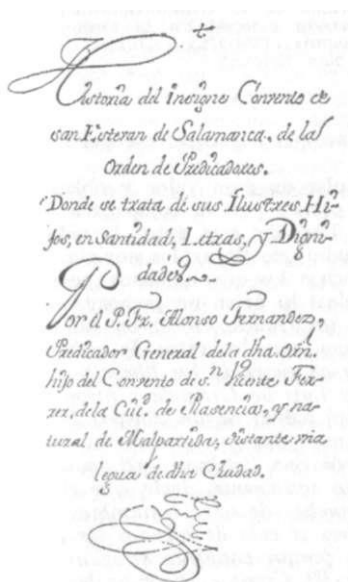 Historia del Insigne Convento de
san Esteran de Salamanca, de la
Orden de Predicadores.
Donde se trata de sus Ilustres Hi-
jos, en Santidad, Letras, y Digni-
dades.
Por el P. Fr. Alonso Fernandez,
Predicador General de la dha. Orn.
hijo del Convento de s.n Vicente Fer-
rer, de la Ciu.d de Plasencia, y na-
tural de Malpartida, distante una
legua de dha Ciudad.